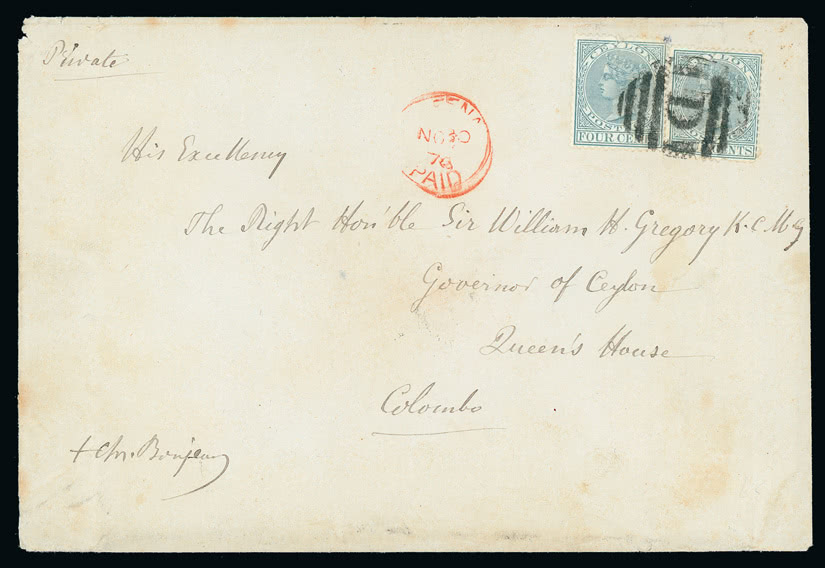 Private
CEYLON
POSTAGE
FOUR CENTS
CEYLON
CENTS
D
NO 30
78
PAID
His Excellency
The Right Hon'ble Sir William H. Gregory K.C.M.G
Governor of Ceylon
Queen's House
Colombo
+ Chr. Bonjean